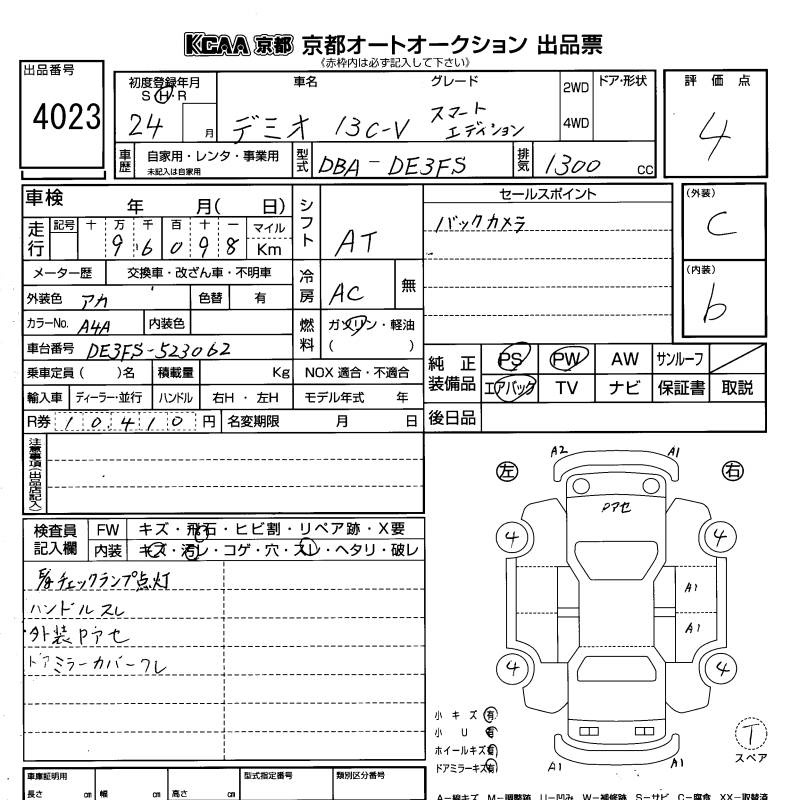 KCAA 京都 京都オートオークション 出品票
《赤枠内は必ず記入して下さい》
出品番号
4023
初度登録年月
S H R
24 月
車名
デミオ 13C-V
グレード
スマート
エディション
2WD
4WD
ドア・形状
評価点
4
車歴
自家用・レンタ・事業用
未記入は自家用
型式
DBA-DE3FS
排気
1300 cc
車検 年 月( 日)
走行
記号 十 万 千 百 十 一 マイル
9 6 0 9 8 Km
メーター歴 交換車・改ざん車・不明車
外装色 アカ 色替 有
カラーNo. A4A 内装色
車台番号 DE3FS-523062
乗車定員 ( )名 積載量 Kg
輸入車 ディーラー・並行 ハンドル 右H・左H
R券 10410 円 名変期限 月 日
シフト
AT
冷房
AC 無
燃料
ガソリン・軽油
( )
NOX 適合・不適合
モデル年式 年
セールスポイント
バックカメラ
(外装)
C
(内装)
b
純正装備品
PS PW AW サンルーフ
エアバック TV ナビ 保証書 取説
後日品
注意事項(出品店記入)
検査員
記入欄
FW キズ・飛石・ヒビ割・リペア跡・X要
内装 キズ・汚レ・コゲ・穴・スレ・ヘタリ・破レ
チェックランプ点灯
ハンドルスレ
外装Pアセ
ドアミラーカバーワレ
左
右
A2 A1
Pアセ
4 4
A1
A1
4 4
A1 A1
小キズ 有
小U 有
ホイールキズ 有
ドアミラーキズ 有
T
スペア
車庫証明用
長さ cm 幅 cm 高さ cm
型式指定番号
類別区分番号
A-線キズ M-調整跡 U-凹み W-補修跡 S-サビ C-腐食 XX-取替済